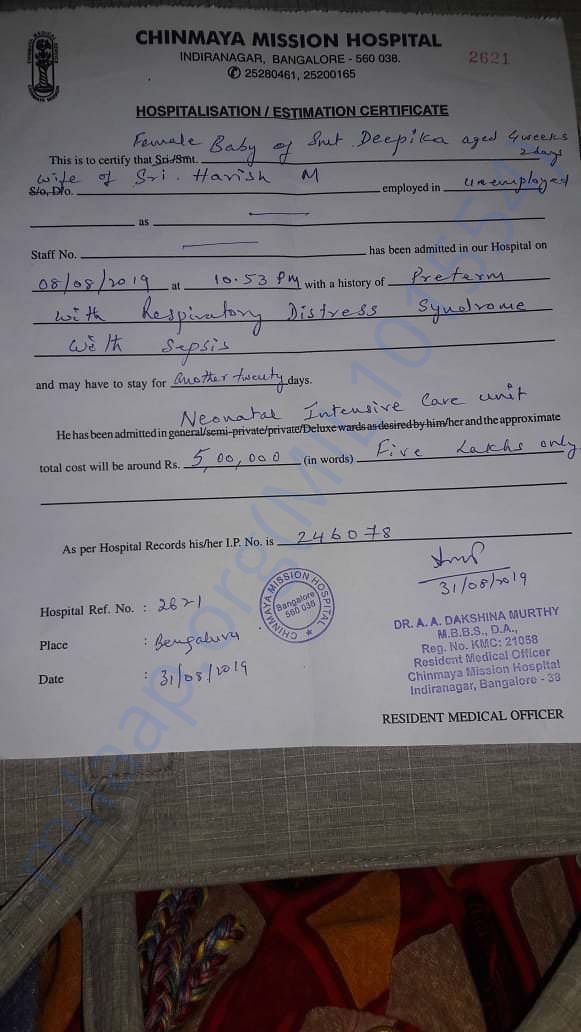 CHINMAYA MISSION HOSPITAL
INDIRANAGAR, BANGALORE - 560 038.
✆ 25280461, 25200165
2621
HOSPITALISATION / ESTIMATION CERTIFICATE
Female Baby of Smt Deepika aged 4 weeks
2 days
This is to certify that Sri/Smt.
wife of Sri. Harish M
S/o, D/o. employed in unemployed
as
Staff No. has been admitted in our Hospital on
08/08/2019 at 10.53 PM with a history of Preterm
with Respiratory Distress Syndrome
with Sepsis
and may have to stay for another twenty days.
Neonatal Intensive Care unit
He has been admitted in general/semi-private/private/Deluxe wards as desired by him/her and the approximate
total cost will be around Rs. 5,00,000 (in words) Five Lakhs only
As per Hospital Records his/her I.P. No. is 246078
31/08/2019
Hospital Ref. No. : 2621
Place : Bengaluru
Date : 31/08/2019
CHINMAYA MISSION HOSPITAL
Bangalore
560 038
DR. A. A. DAKSHINA MURTHY
M.B.B.S., D.A.,
Reg. No. KMC: 21058
Resident Medical Officer
Chinmaya Mission Hospital
Indiranagar, Bangalore - 38
RESIDENT MEDICAL OFFICER